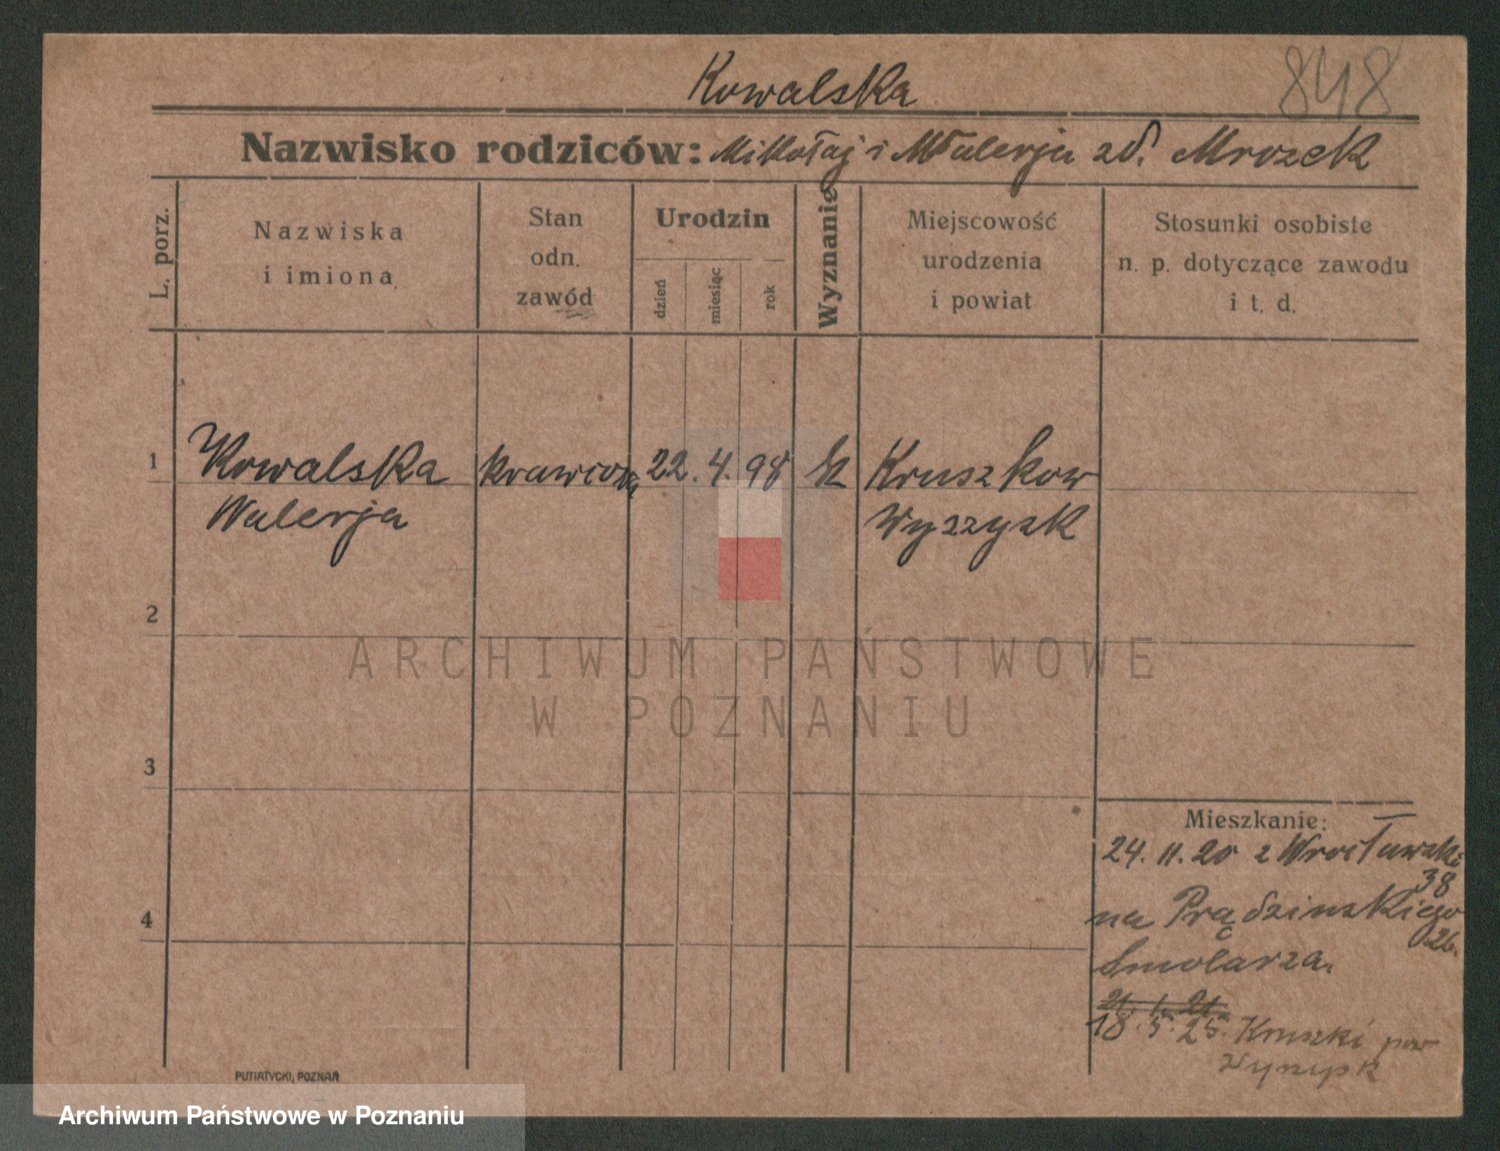 848
Kowalska
Nazwisko rodziców: Mikołaj i Walerja zd. Mrozek
L. porz.
Nazwiska
i imiona
Stan
odn.
zawód
Urodzin
dzień
miesiąc
rok
Wyznanie
Miejscowość
urodzenia
i powiat
Stosunki osobiste
n. p. dotyczące zawodu
i t. d.
1 Kowalska krawcowa 22. 4. 98 Kruszkow
Walerja Wyszysk
2
ARCHIWUM PAŃSTWOWE
W POZNANIU
3
Mieszkanie:
24. 11. 20 z Wrocławski
38
4 na Prądzinskiego
26.
Smolarza.
21. 1. 21.
18. 5. 25. Kruszki pow
Wyszysk
PUTIATYCKI, POZNAŃ
Archiwum Państwowe w Poznaniu